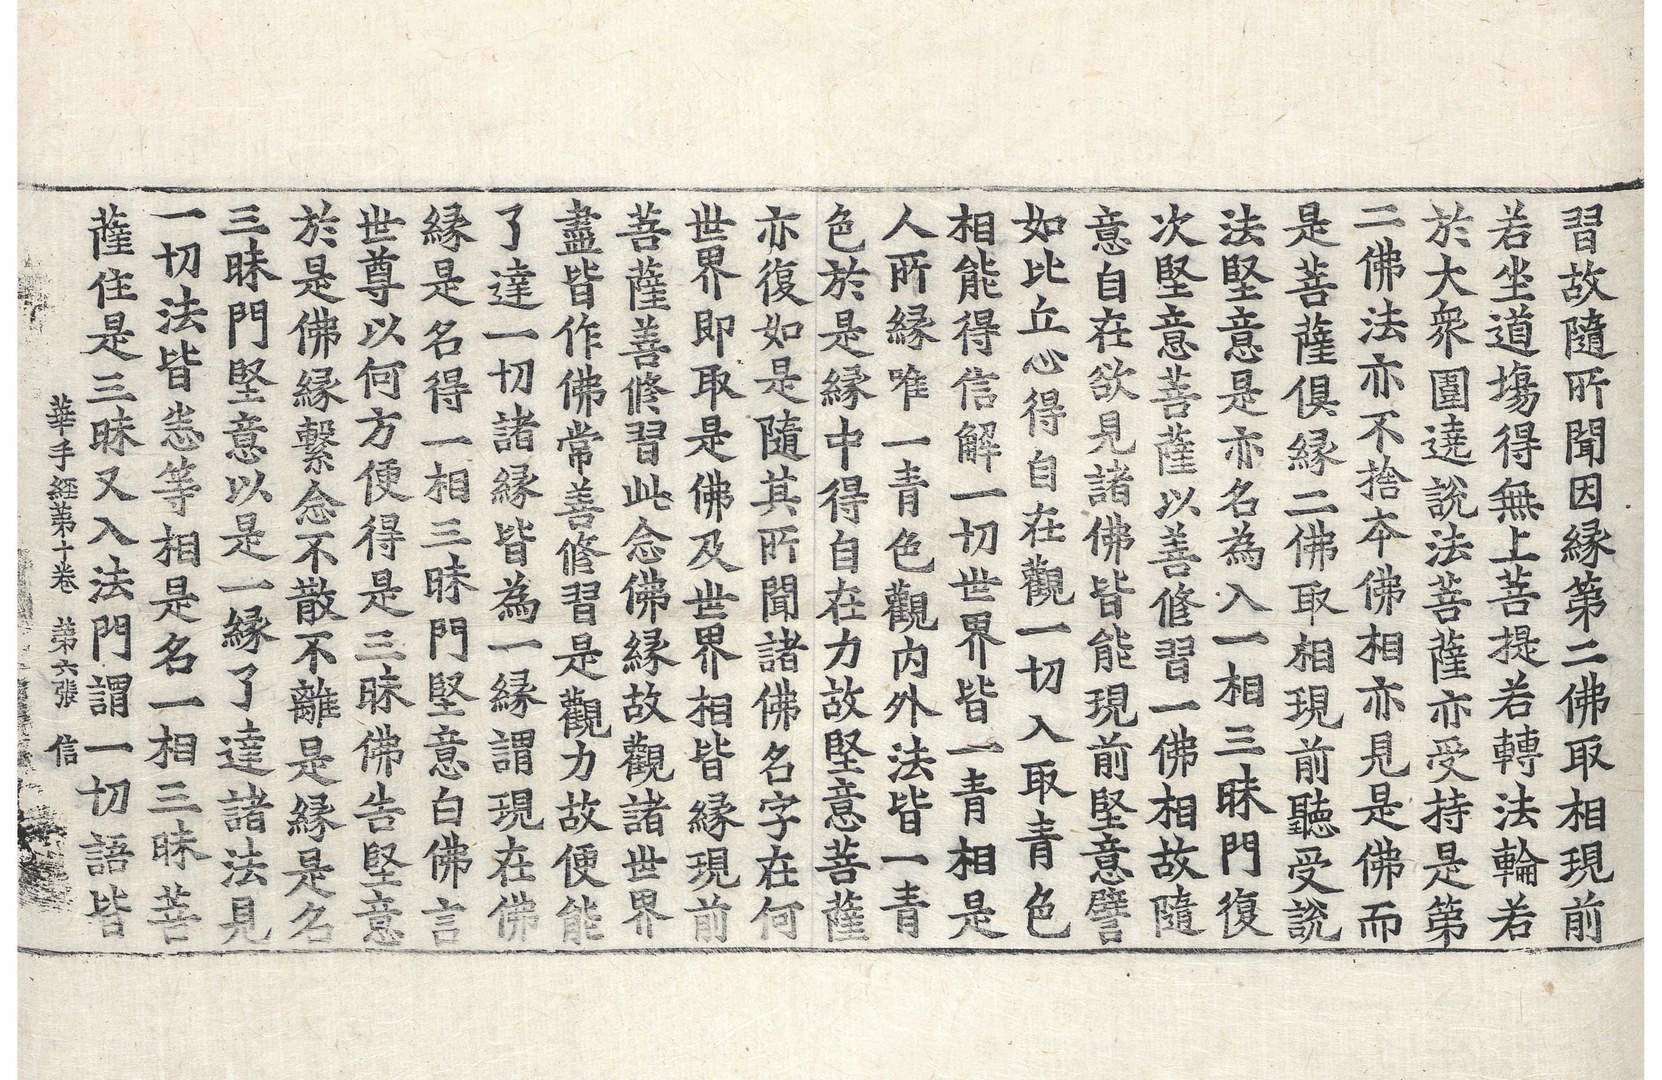 習故隨所聞因緣第二佛取相現前
若坐道場得無上菩提若轉法輪若
於大衆圍遶說法菩薩亦受持是第
二佛法亦不捨本佛相亦見是佛而
是菩薩俱緣二佛取相現前聽受說
法堅意是亦名為入一相三昧門復
次堅意菩薩以善修習一佛相故隨
意自在欲見諸佛皆能現前堅意譬
如比丘心得自在觀一切入取青色
相能得信解一切世界皆一青相是
人所緣唯一青色觀內外法皆一青
色於是緣中得自在力故堅意菩薩
亦復如是隨其所聞諸佛名字在何
世界即取是佛及世界相皆緣現前
菩薩善修習此念佛緣故觀諸世界
盡皆作佛常善修習是觀力故便能
了達一切諸緣皆為一緣謂現在佛
緣是名得一相三昧門堅意白佛言
世尊以何方便得是三昧佛告堅意
於是佛緣繫念不散不離是緣是名
三昧門堅意以是一緣了達諸法見
一切法皆悉等相是名一相三昧菩
薩住是三昧又入法門謂一切語皆
華手經第十卷　第六張　信